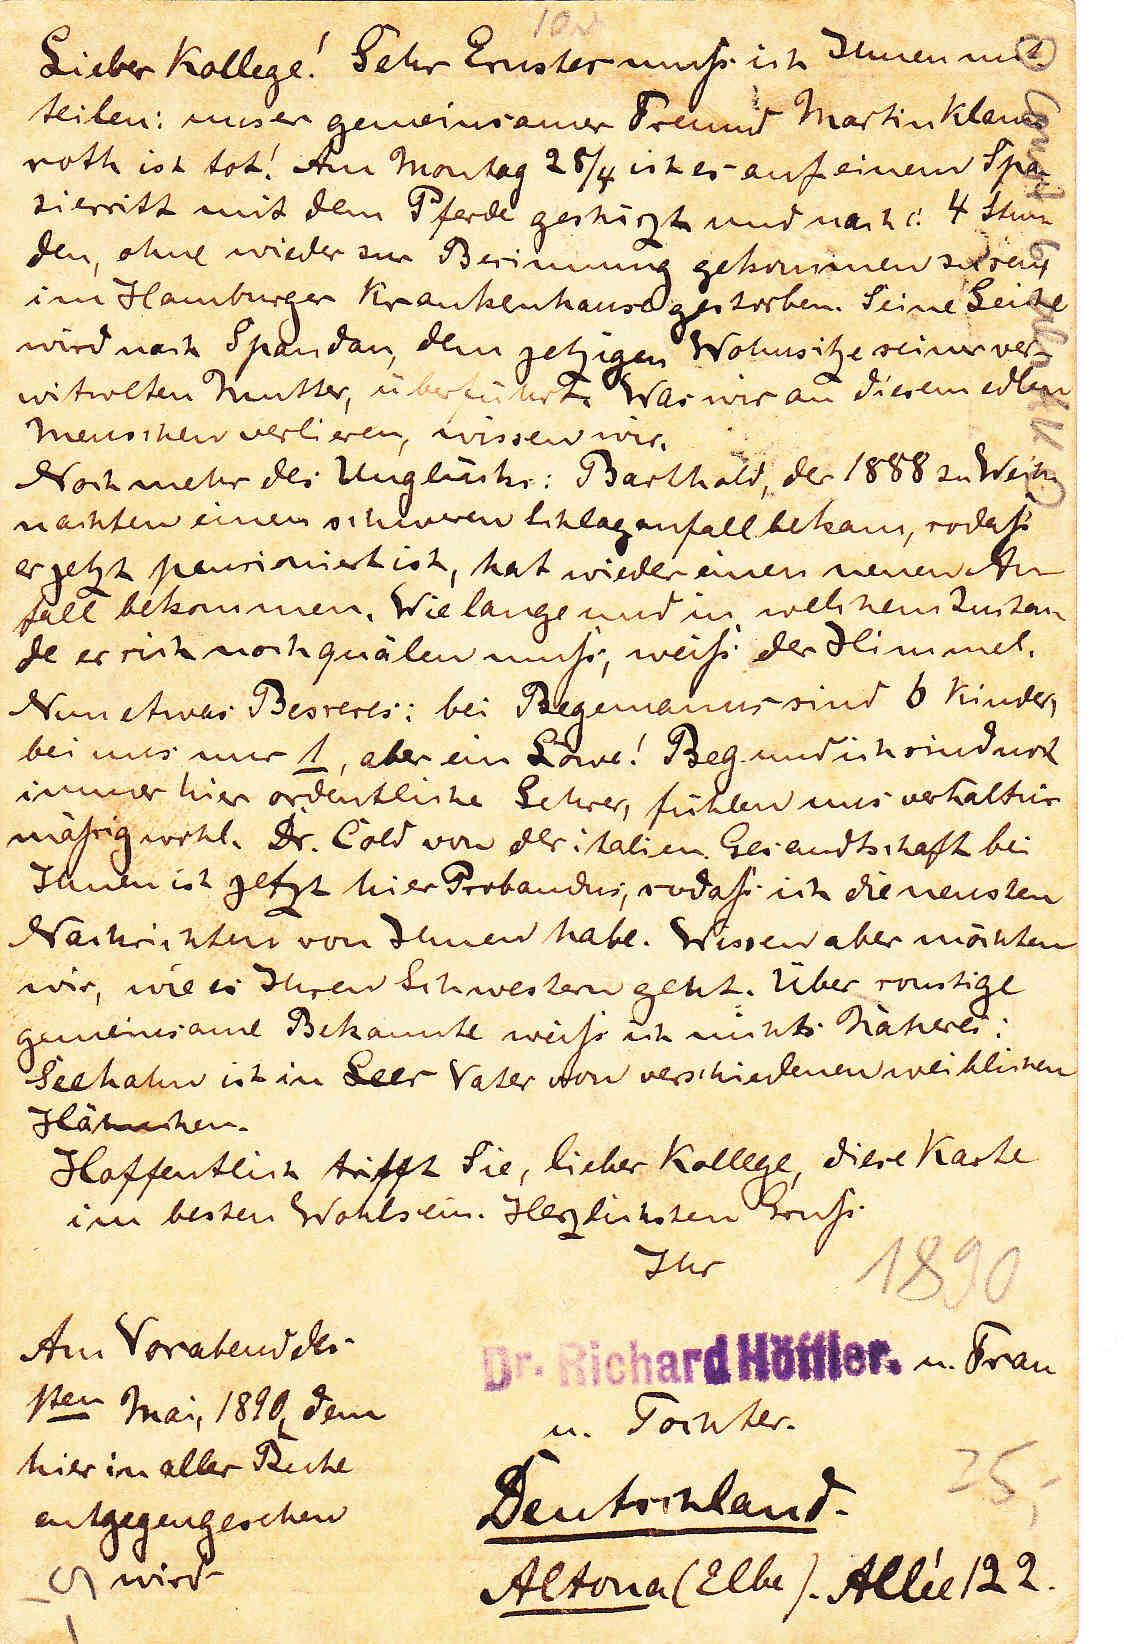 Lieber Kollege! Sehr Ernstes muss ich Ihnen mit
teilen: unser gemeinsamer Freund Martin Klap
roth ist tot! Am Montag 28/4 ist es auf einem Spa
zierritt mit dem Pferde gestürzt und nach 4 Stun
den, ohne wieder zur Besinnung gekommen zu sein
im Hamburger Krankenhause gestorben. Seine Leiche
wird nach Spandau, dem jetzigen Wohnsitze seiner ver-
witweten Mutter, überführt. Was wir an diesem edlen
Menschen verlieren, wissen wir.
Noch mehr des Unglücks: Barthold, der 1888 zu Weih
nachten einen schweren Schlaganfall bekam, sodass
er jetzt pensioniert ist, hat wieder einen neuen An-
fall bekommen. Wie lange und in welchem Zustan
de er sich noch quälen muss, weiss der Himmel.
Nun etwas Besseres: bei Begemanns sind 6 Kinder,
bei uns nur 1, aber ein Löwe! Beg. und ich sind noch
immer hier ordentliche Lehrer, fühlen uns verhältnis
mässig wohl. Dr. Cold von der italien. Gesandtschaft bei
Ihnen ist jetzt hier Probandus, sodass ich die neusten
Nachrichten von Ihnen habe. Wissen aber möchten
wir, wie es Ihren Schwestern geht. Über sonstige
gemeinsame Bekannte weiss ich nichts Näheres:
Seehahn ist in Leer Vater von verschiedenen weiblichen
Hähnchen.
Hoffentlich trifft Sie, lieber Kollege, diese Karte
im besten Wohlsein. Herzlichsten Gruss
Ihr
1890
Am Vorabend des
1sten Mai, 1890, dem
hier in aller Ruhe
entgegengesehen
wird
Dr. Richard Höffler. u. Frau
u. Tochter.
Deutschland.
Altona (Elbe). Allée 122.
25,-